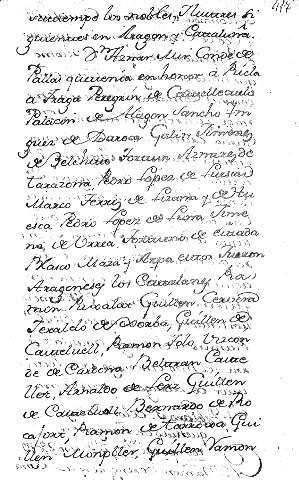 417
su tiempo los nobles, Navares si
guientes en Aragon y Cataluña.
Dn. Aznar Mir, Conde de
Pallas que tenia en honor á Ricla
á Fraga Peregrin de Castellezuelo
Palacin de Alagon Sancho Iñi
guez de Daroca Galin Ximenez
de Belchite Fortun Aznarez de
tarazona Pedro Lopez de Luesia
Marco Ferriz de Lizana y de Hu
esca Pedro Lopez de Luna Xime
no de Urrea de
Blasco Maza y Arpa estos fueron
Aragoneses y los Catalanes Ra
mon Guillen Cervera
Geraldo de Jorba, Guillen de
Castellvell, Ramon Folc Vizcon
de de Cardona Beltran Caste
llet, Arnaldo de Guillen
de Castellvell Bernardo de Ro
cafort, Ramon de Gui
llen Monpller, Guillen Ramon